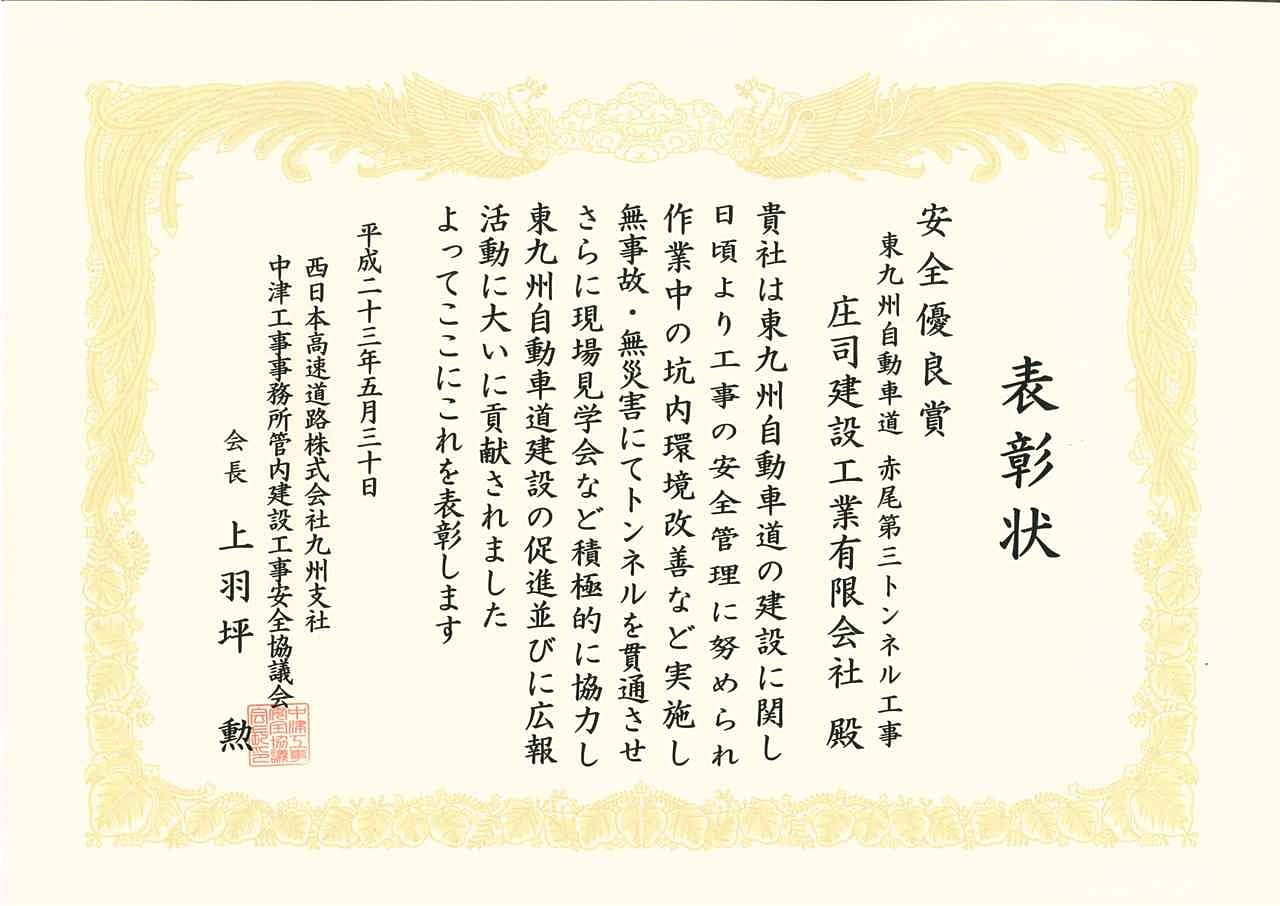 表彰状
安全優良賞
東九州自動車道 赤尾第三トンネル工事
庄司建設工業有限会社 殿
貴社は東九州自動車道の建設に関し
日頃より工事の安全管理に努められ
作業中の坑内環境改善など実施し
無事故・無災害にてトンネルを貫通させ
さらに現場見学会など積極的に協力し
東九州自動車道建設の促進並びに広報
活動に大いに貢献されました
よってここにこれを表彰します
平成二十三年五月三十日
西日本高速道路株式会社九州支社
中津工事事務所管内建設工事安全協議会
会長 上羽坪 勲
中津工事
安全協議
会長之印